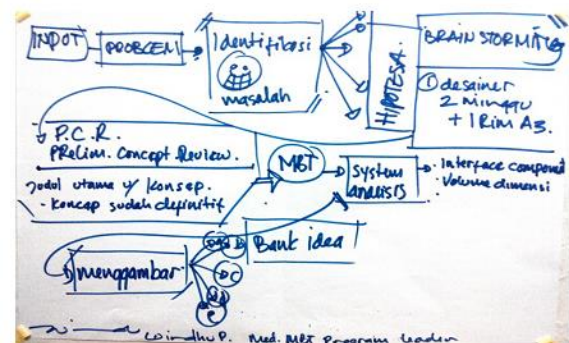 INPUT
PROBLEM
Identifikasi
masalah
HIPOTESA.
BRAINSTORMING
① desainer
2 minggu
+ 1 Rim A3.
P.C.R.
PRelim. Concept Review.
Judul utama y/ konsep.
- koncap sudah definitif
MBT
System
analisis
Interface component
Volume dimensi
menggambar
Bank idea
C
e
Windhu P. Med. MBT Program leader